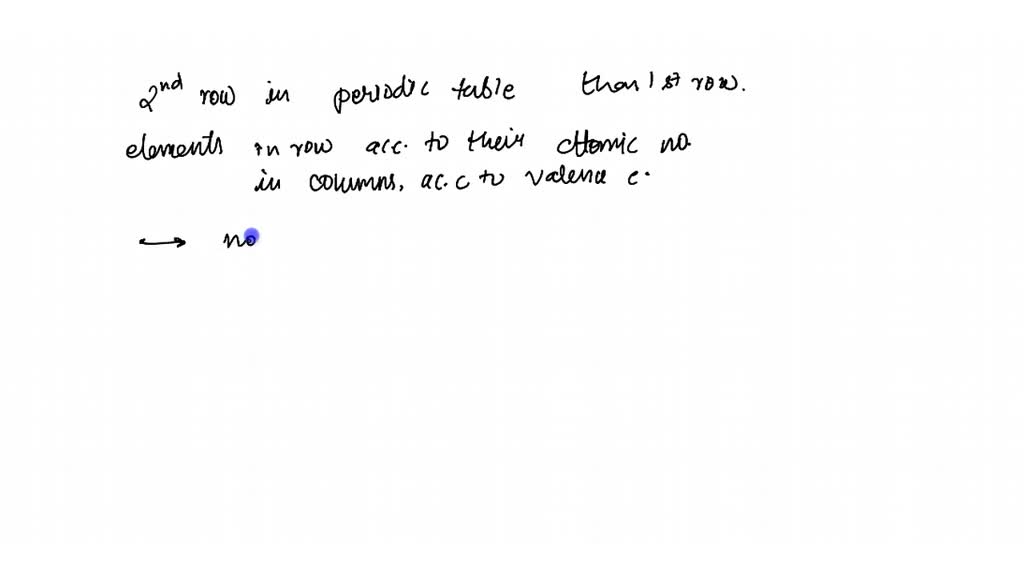 2nd row in periodic table than 1st row.
elements in row acc. to their atomic no.
in columns, ac.c to valence e.
⟷ no